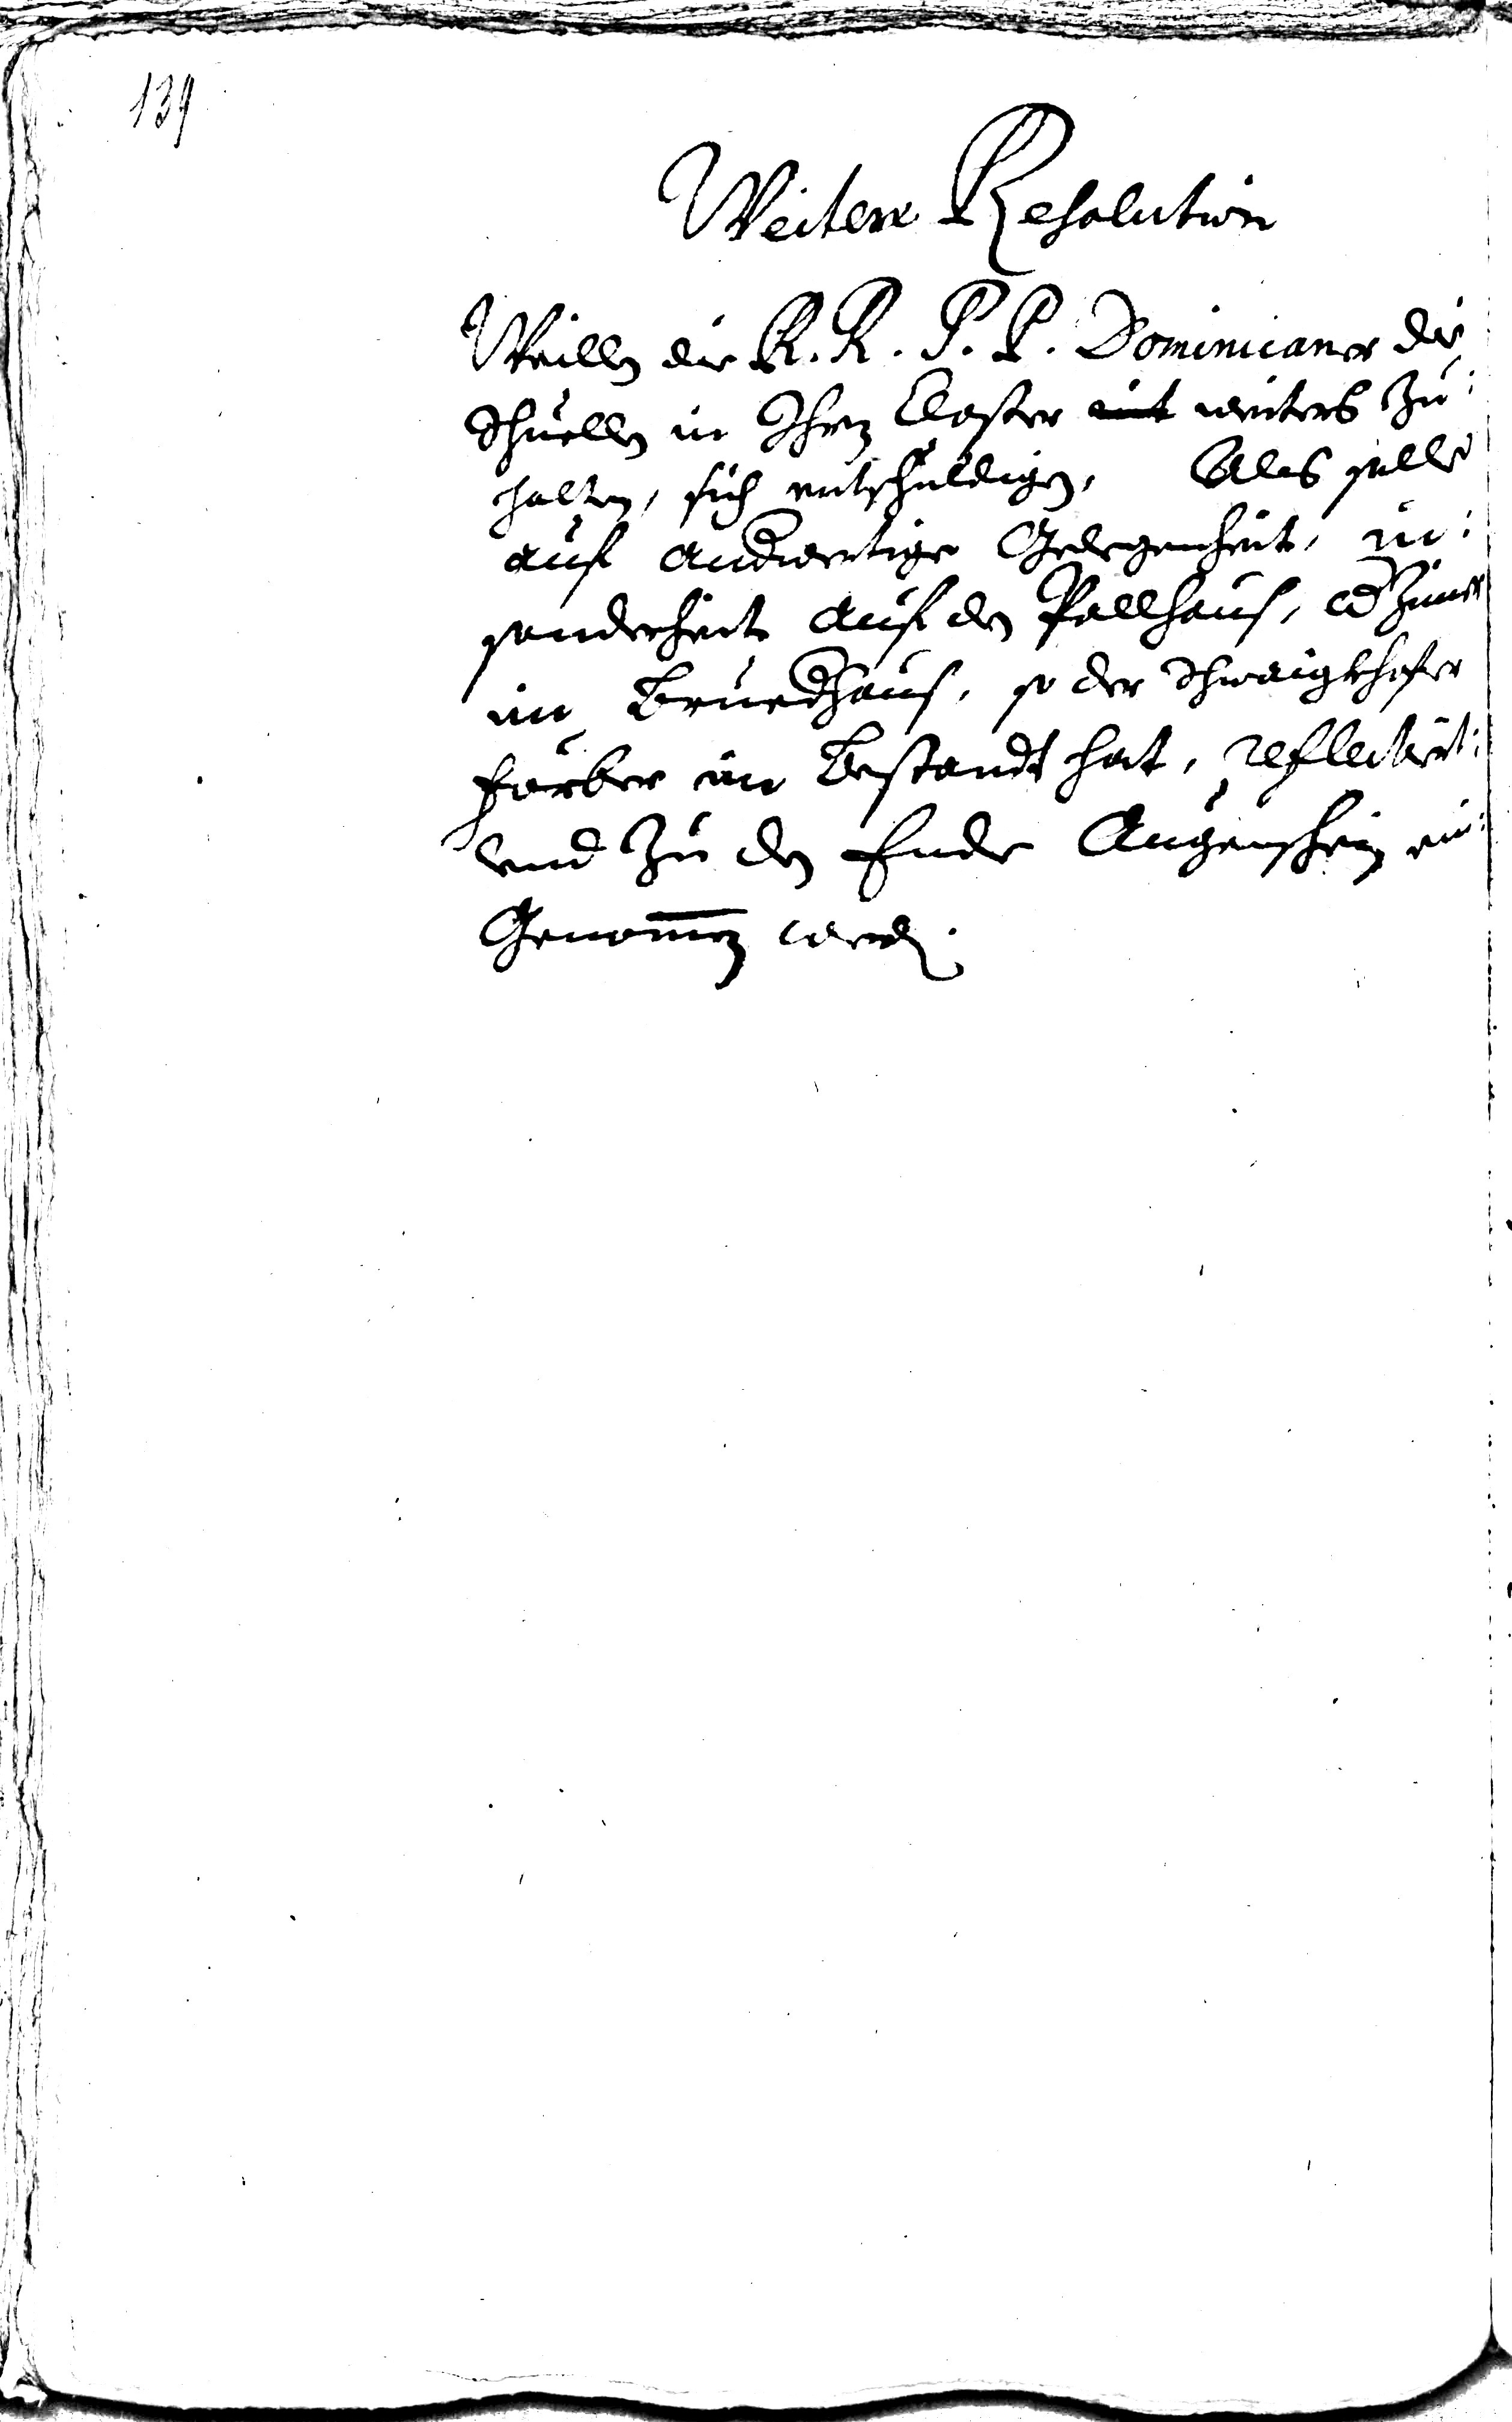 139
Weitere Resolution
Weillen die R. R. P. P. Dominicaner die
Schuellen in Ihrem Closter nit weiters zu:
halten, sich entschuldigen, Als solle
auf anderwertige Gelegenheit, in:
sonderheit auf den Pallhaus, oder Zimer
im Bruedhaus, so der Schwaigkhofer
färber im Bestandt hat, reflectirt:
vnd zu dem Ende Augenschein ein:
Genommen werden.